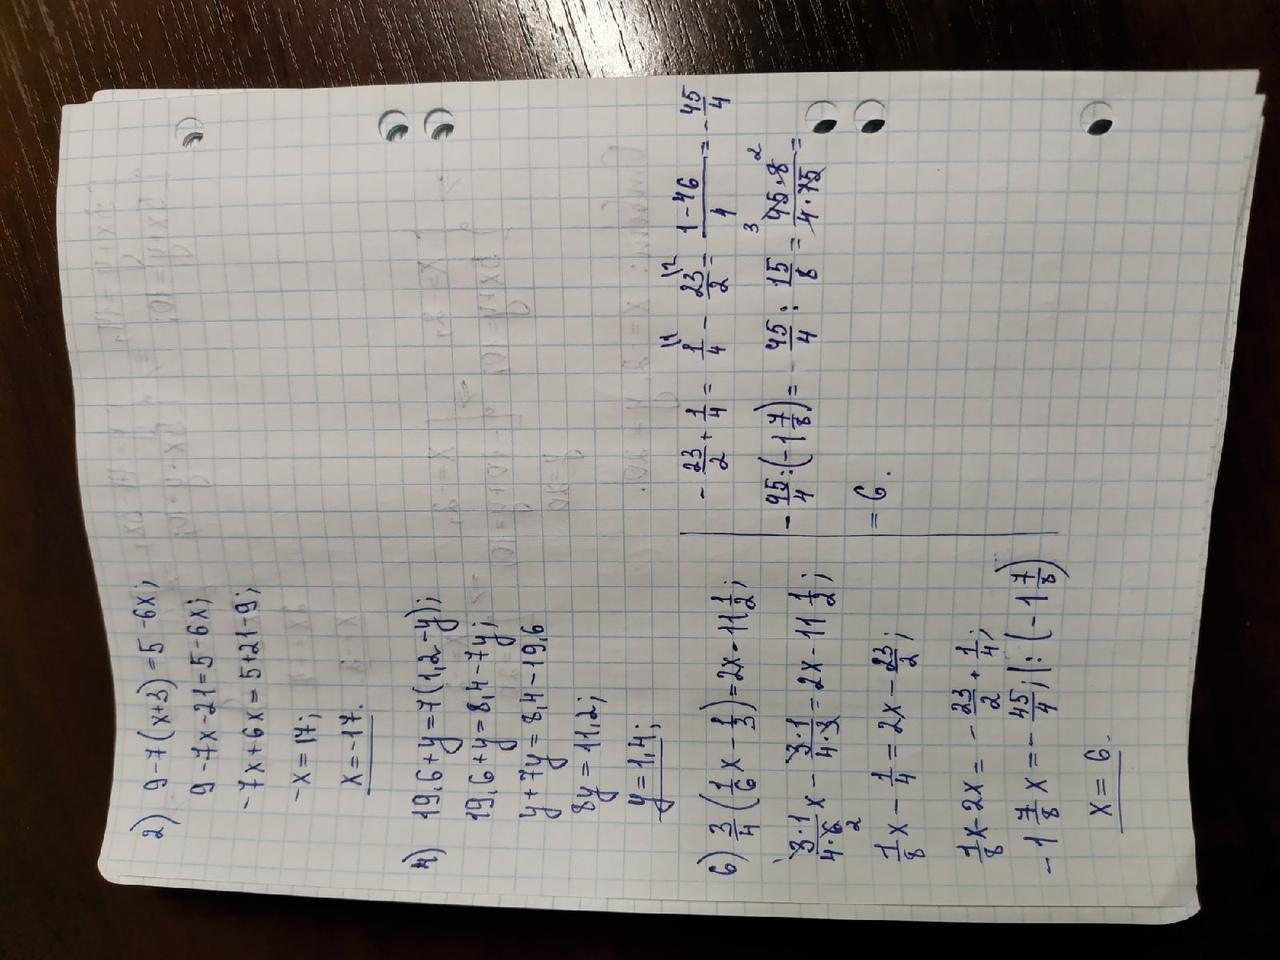 2) 9-7(x+3)=5-6x;
9-7x-21=5-6x;
-7x+6x=5+21-9;
-x=17;
x=-17.
4) 19,6+y=7(1,2-y);
19,6+y=8,4-7y;
y+7y=8,4-19,6
8y=11,2;
y=1,4;
6) 3/4(1/6x-1/3)=2x-11 1/2;
3·1/4·6x-3·1/4·3=2x-11 1/2;
2
1/8x-1/4=2x-23/2;
1/8x-2x=-23/2+1/4;
-1 7/8x=-45/4; |:(-1 7/8)
x=6.
-23/2+1/4=1/4-23/2=1-46/4=-45/4
-45/4:(-1 7/8)=45/4:15/8=45·8/4·15=
3 2
=6.